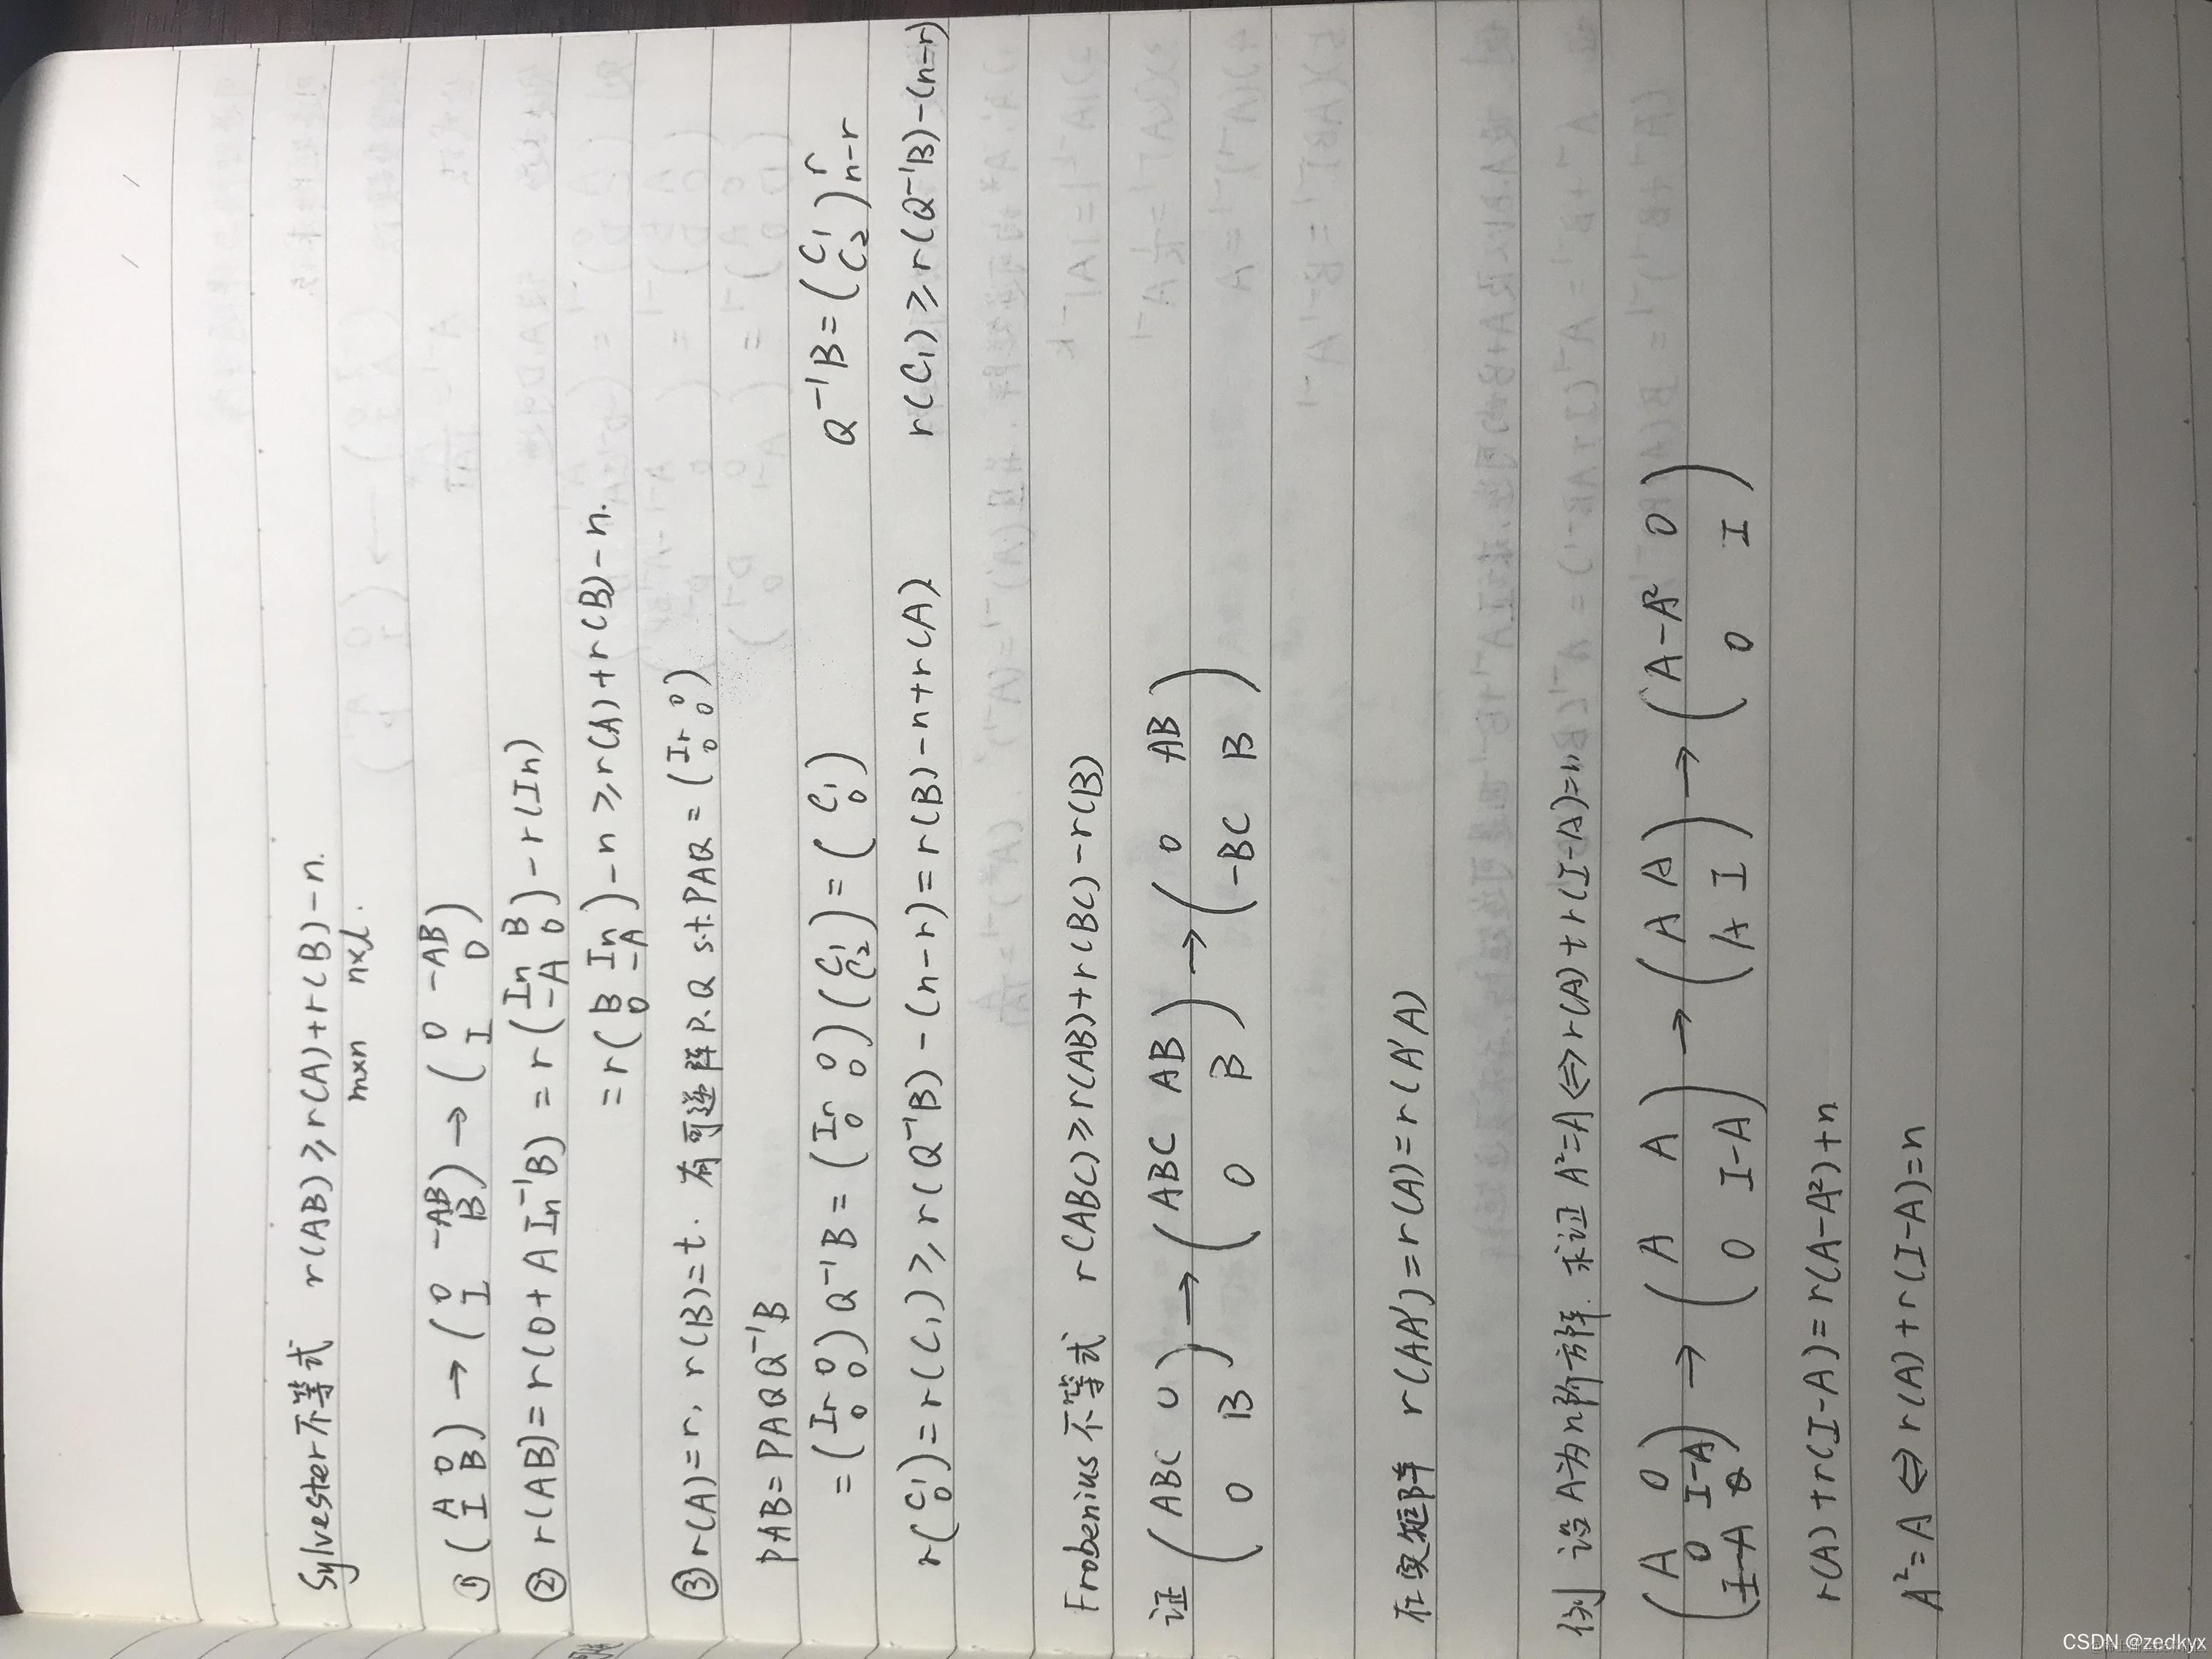 Sylvester不等式 r(AB)≥r(A)+r(B)-n.
m×n n×l.
① (A 0 / I B) → (0 -AB / I B) → (0 -AB / I 0)
② r(AB)=r(0+A In⁻¹B) = r(In B / -A 0) - r(In)
= r(B In / 0 -A) - n ≥ r(A)+r(B)-n.
③ r(A)=r, r(B)=t. 有可逆阵 P.Q s.t. PAQ = (Ir 0 / 0 0)
PAB = PAQQ⁻¹B
= (Ir 0 / 0 0) Q⁻¹B = (Ir 0 / 0 0)(C₁ / C₂) = (C₁ / 0) Q⁻¹B = (C₁ / C₂) r / n-r
r(C₁ / 0) = r(C₁) ≥ r(Q⁻¹B) - (n-r) = r(B)-n+r(A) r(C₁) ≥ r(Q⁻¹B)-(n-r)
Frobenius 不等式 r(ABC)≥r(AB)+r(BC)-r(B)
证 (ABC 0 / 0 B) → (ABC AB / 0 B) → (0 AB / -BC B)
在实矩阵 r(AA')=r(A)=r(A'A)
例 设A为n阶方阵. 求证 A²=A ⇔ r(A)+r(I-A)=n
(A 0 / 0 I-A) → (A A / 0 I-A) → (A A / A I) → (A-A² 0 / 0 I)
r(A)+r(I-A) = r(A-A²)+n
A²=A ⇔ r(A)+r(I-A)=n
CSDN @zedkyx